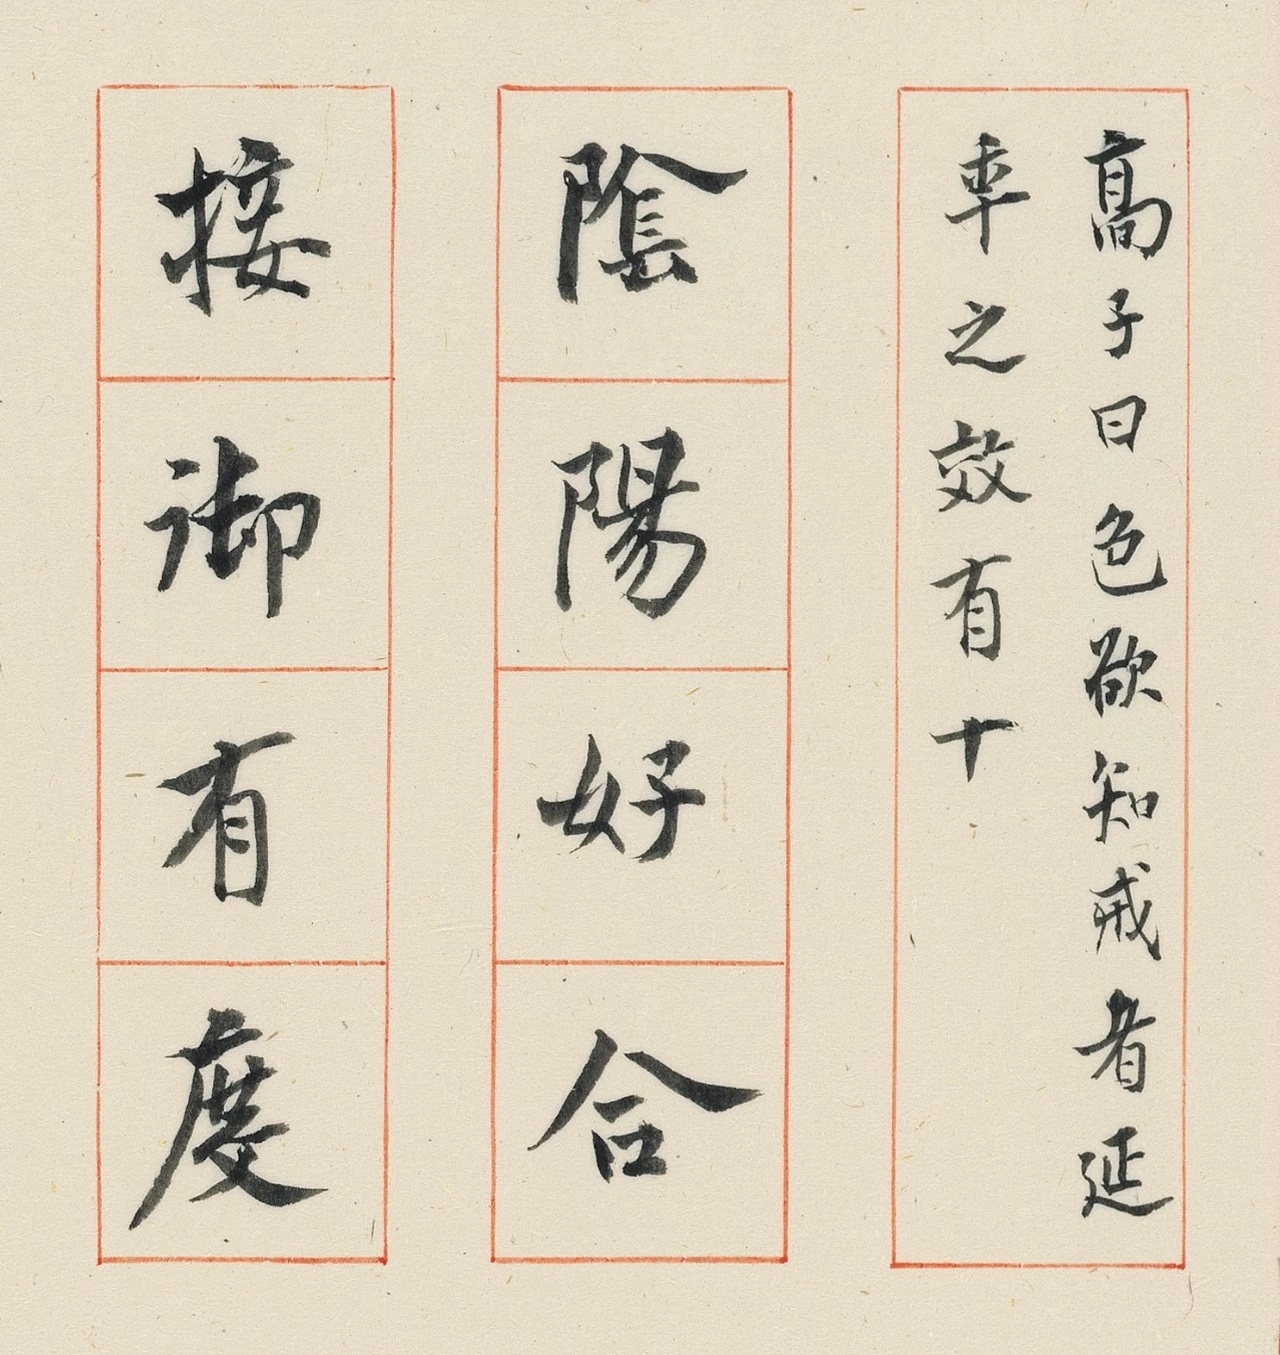 高子曰色欲知戒者延
年之效有十
陰陽好合
接御有度